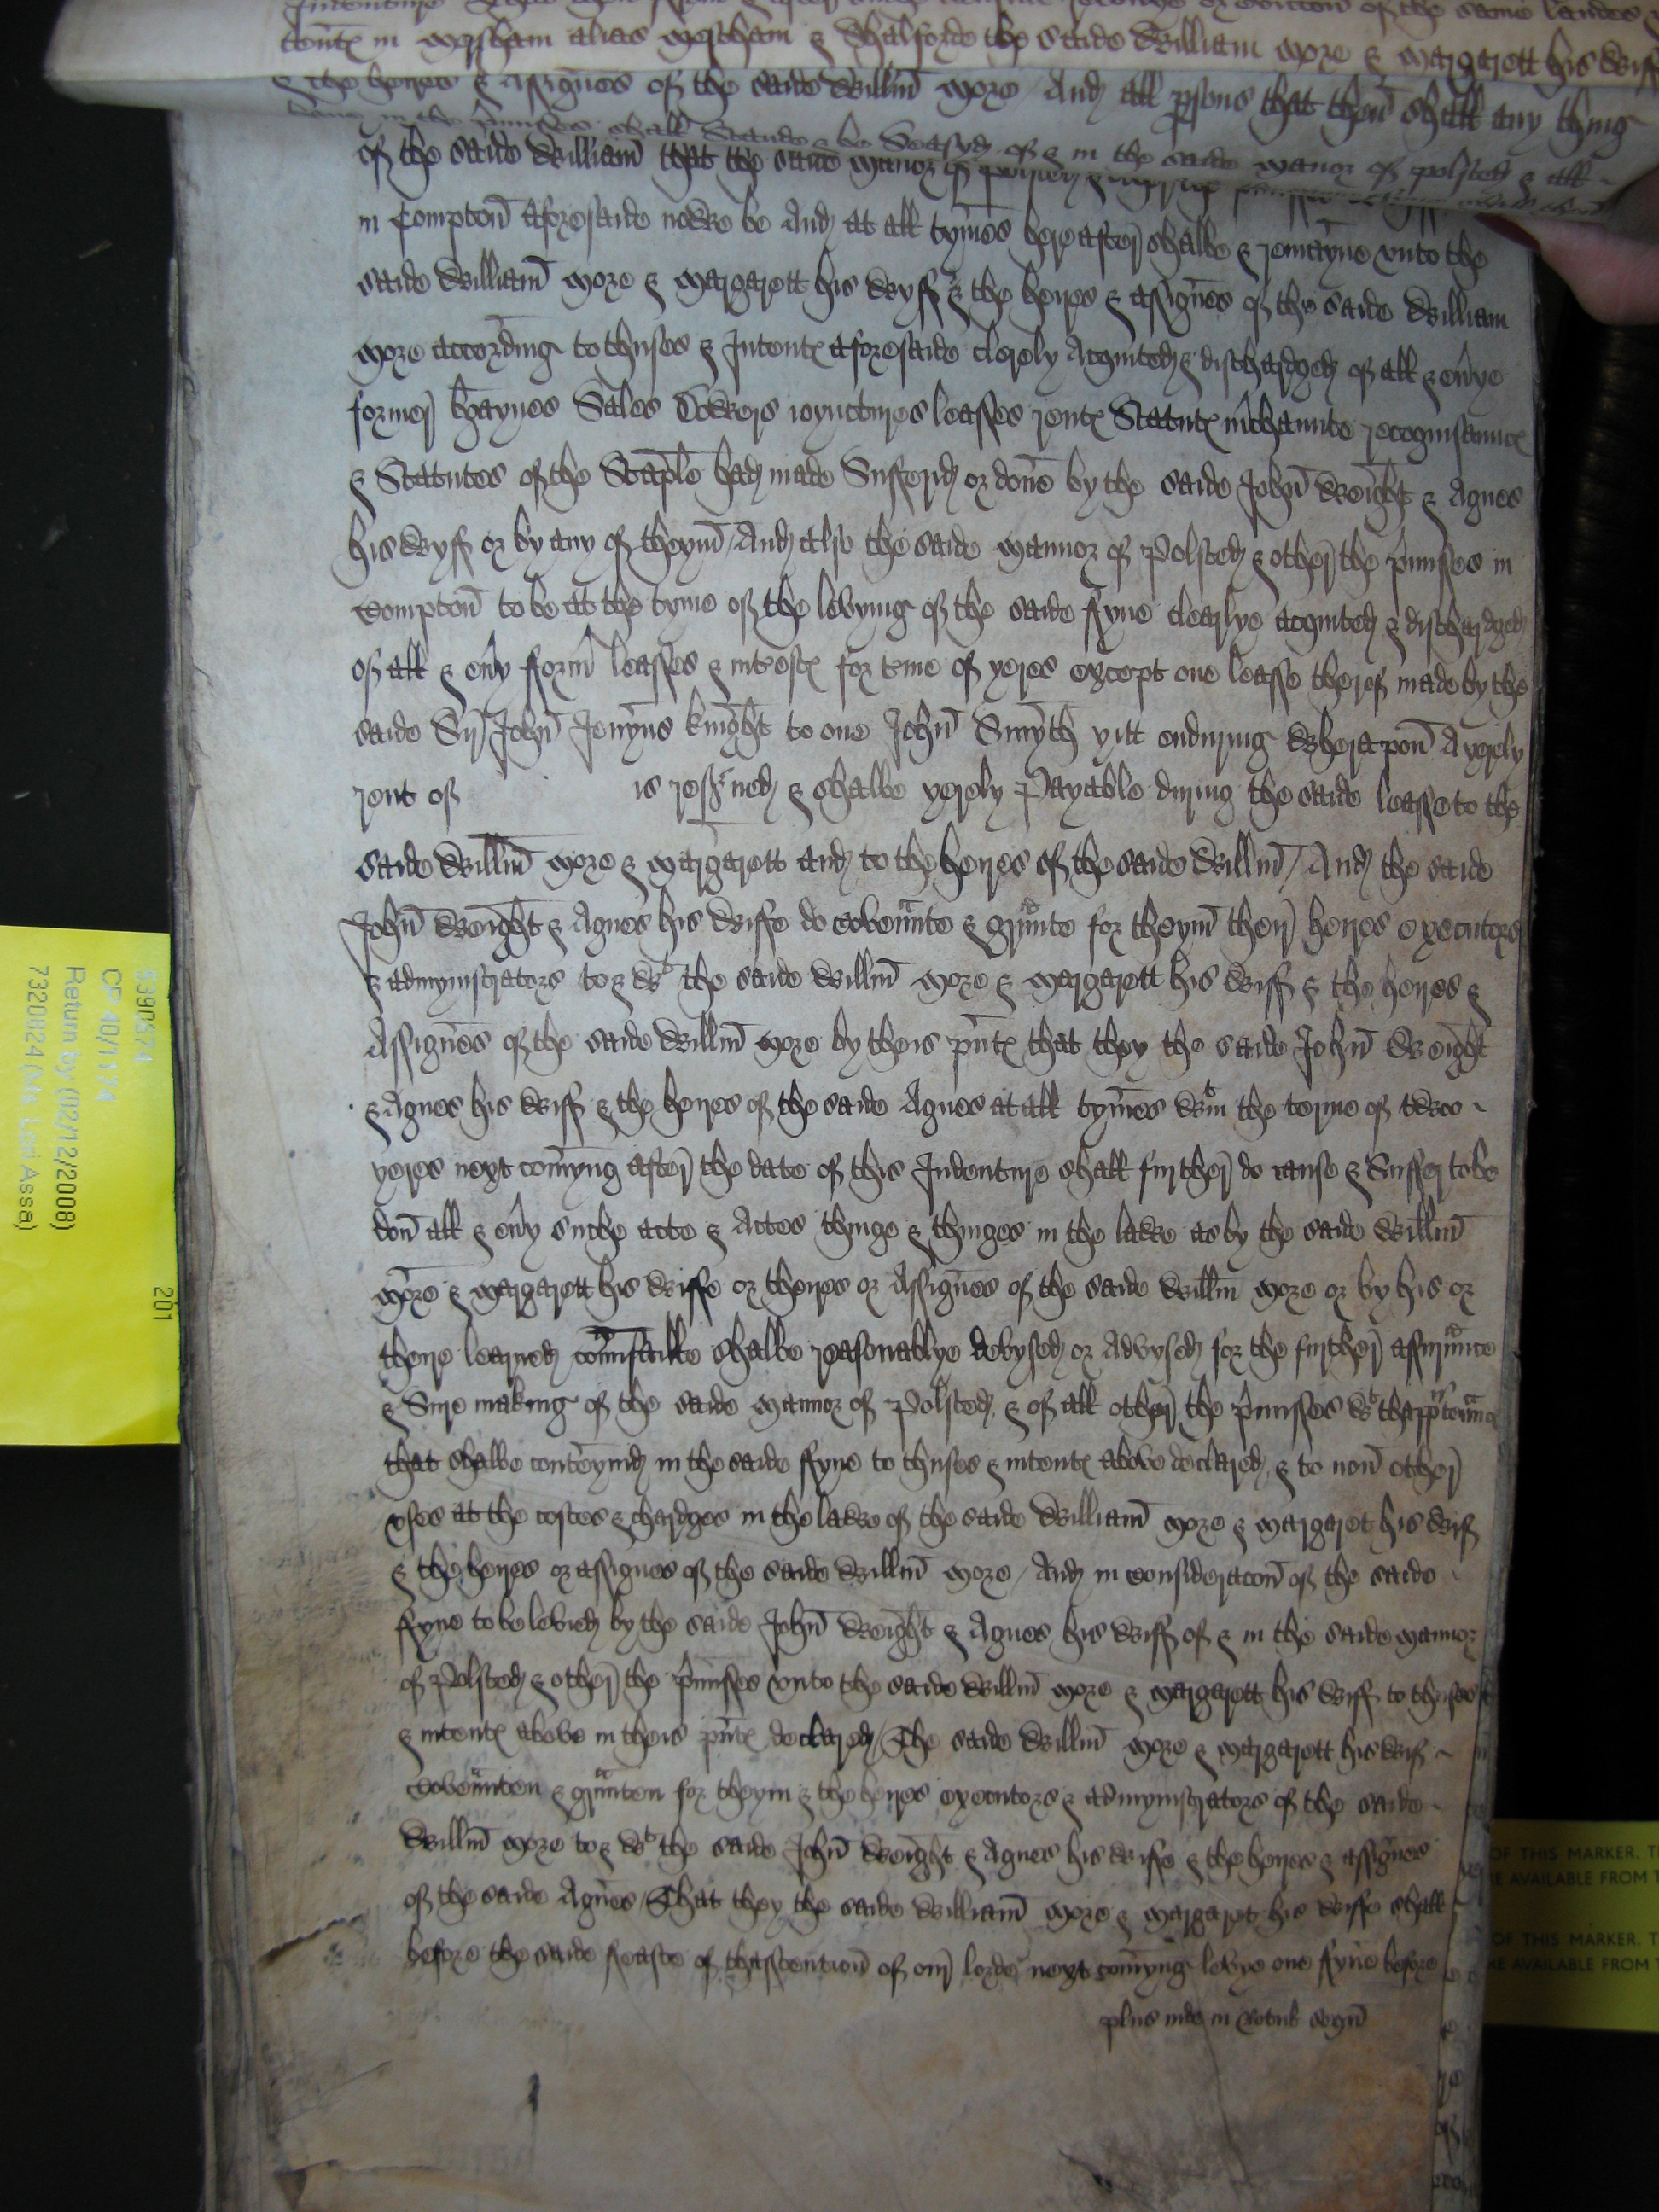 tent℮ in mersham alias mestham & Chalforde the saide William more & margarett his wiff
& the heyres & Assignes of the saide Willm̄ more / And all psons that then shall any thing
have in the p̄misses shall stande & be Seasyd of & in the saide manor of polsted & all
of the saide William that the saide manor of polsted
in Compton aforesaide nowe be And at all tymes hereafter shalbe & remayne unto the
saide William more & margarett his wyff & the heyres & assignes of the saide William
more according to thuses & Intent℮ aforesaide clerely Acquited & discharged of all & ev̄ye
former bgaynes Sales Dowers ioynctures leasses rent℮ Statut℮ m̄chaunte recognisaunc℮
& Statutes of the Staple had made Sufferid or done by the saide John Weight & Agnes
his wyff or by any of theym / And also the saide mannor of Polsted & other the p̄misses in
Compton to be at the tyme of the levying of the saide ffyne clearlye acquited & discharged
of all & ev̄y form̄ leasses & int'est℮ for t'me of yeres except one leasse therof made by the
saide Sir John Jenyns knight to one John Smyth yitt enduring wherapon A yerely
rent of is res'ved & shalbe yerely Payable during the saide leasse to the
saide Willm̄ more & margarett and to the heyres of the saide Willm̄ / And the saide
John Weight & Agnes his wiffe do covennte & grnnte for theym their heyres executors
& admynistrators to & wt the saide Willm̄ more & margarett his wiff & the heyres &
Assignes of the saide Willm̄ more by theis p̄nt℮ that they the saide John Weight
& Agnes his wiff & the heyres of the saide Agnes at all tymes wtin the terme of twoo
yeres next comyng after the date of this Indenture shall further do cause & Suffer to be
don all & ev̄y suche acte & Actes thinge & thinges in the lawe as by the saide Willm̄
more & margarett his wiffe or theyres or Assignes of the saide Willm̄ more or by his or
there learned counsaille shalbe reasonablye devysed or Advysed for the further assurnnce
& Sure making of the saide mannor of Polsted & of all other the p̄misses wt thapp'tennnc℮
that shalbe conteynid in the saide ffyne to thuses & intent℮ above declared & to non other
uses at the costes & chardges in the lawe of the saide William more & margaret his wif
& the heyres or assignes of the saide Willm̄ more / And in consideracon of the saide
ffyne to be levied by the saide John Weight & Agnes his wiff of & in the saide mannor
of Polsted & other the p̄misses unto the saide Willm̄ more & margarett his wiff to thuses
& intent℮ above in theis p̄nt℮ declared / The saide Willm̄ more & margarett his wif
covennten & grnnten for theym & the heyres executors & admynistrators of the saide
Willm̄ more to & wt the saide John Weight & Agnes his wiffe & the heyres & assignes
of the saide Agnes / That they the saide William more & margaret his wiffe shall
before the saide feaste of thasscention of our lorde next comyng levye one fyne before
plus inde in Rotulo
5390574
CP 40/1174
Return by (02/12/2008)
7320824 (Ms Lori Assa)
201
OF THIS MARKER. T
RE AVAILABLE FROM T
OF THIS MARKER. T
RE AVAILABLE FROM T